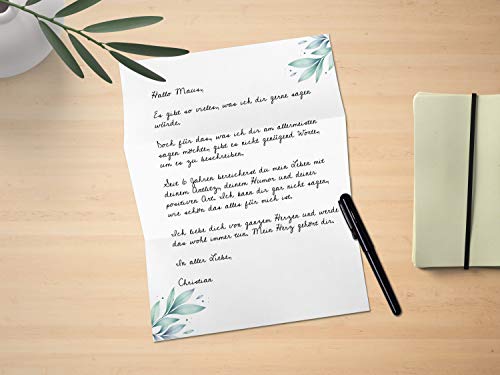 Hallo Maus,
Es gibt so vieles, was ich dir gerne sagen
würde.
Doch für das, was ich dir am allermeisten
sagen möchte, gibt es nicht genügend Worte,
um es zu beschreiben.
Seit 6 Jahren bereicherst du mein Leben mit
deinem Antlitz, deinem Humor und deiner
positiven Art. Ich kann dir gar nicht sagen,
wie schön das alles für mich ist.
Ich liebe dich von ganzem Herzen und werde
das wohl immer tun. Mein Herz gehört dir.
In aller Liebe,
Christian